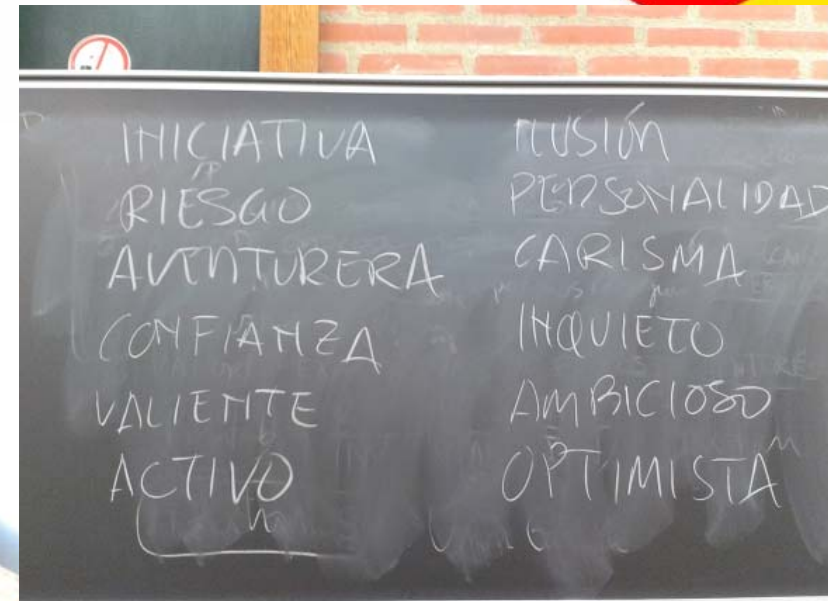 INICIATIVA
RIESGO
AVENTURERA
CONFIANZA
VALIENTE
ACTIVO
ILUSIÓN
PERSONALIDAD
CARISMA
INQUIETO
AMBICIOSO
OPTIMISTA